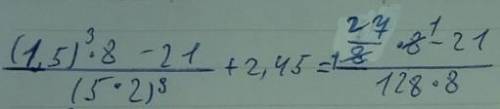 (1,5)³·8 - 21 / (5·2)³ + 2,45 = 27/8 ·8¹ - 21 / 128·8